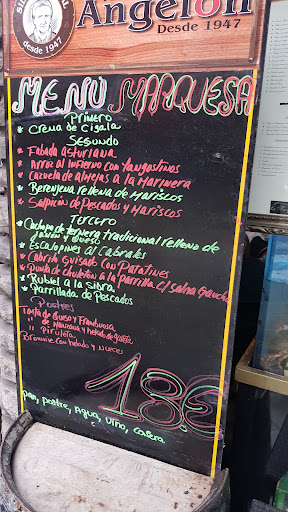 SIDRA
Angelón
desde 1947
Desde 1947
MENÚ MARQUESA
PRIMERO
* Crema de Cigala
SEGUNDO
* Fabada asturiana
* Arroz al infierno con langostinos
* Cazuela de almejas a la Marinera
* Berenjena rellena de Mariscos
* Salpicón de Pescados y Mariscos
TERCERO
* Cachopo de ternera tradicional relleno de
jamón y queso
* Escalopines al Cabrales
* Cabrito Guisado con Patatines
* Punta de chuletón a la parrilla c/ salsa Gaucha
* Rubiel a la Sidra
* Parrillada de Pescados
Postres
Tarta de Queso y Frambuesa
" de Manzana y helado de galleta
" Piruleta
Brownie con helado y nueces
18€
pan, postre, Agua, Vino, Casera